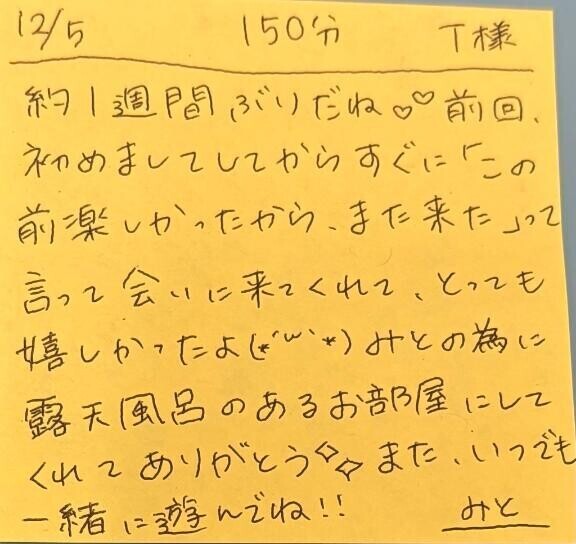 12/5 150分 T様
約1週間ぶりだね♡♡前回、
初めましてしてからすぐに「この
前楽しかったから、また来た」って
言って会いに来てくれて、とっても
嬉しかったよ(*´w`*)みとの為に
露天風呂のあるお部屋にして
くれてありがとう✧✧また、いつでも
一緒に遊んでね!!
みと